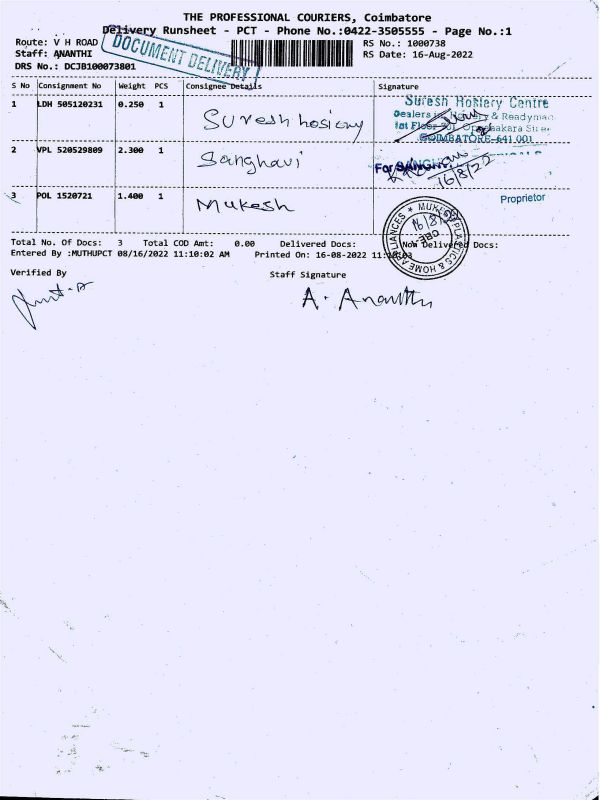 THE PROFESSIONAL COURIERS, Coimbatore
Delivery Runsheet - PCT - Phone No.:0422-3505555 - Page No.:1
Route: V H ROAD
RS No.: 1000738
Staff: ANANTHI
RS Date: 16-Aug-2022
DRS No.: DCJB100073801
DOCUMENT DELIVERY
S No Consignment No Weight PCS Consignee Details Signature
1 LDH 505120231 0.250 1 Suresh hosiery
Suresh Hosiery Centre
Dealers in Hosiery & Readymade
1st Floor
COIMBATORE-641 001
2 VPL 520529809 2.300 1 Sanghavi
For SANGH
16/8/22
3 POL 1520721 1.400 1 Mukesh
Proprietor
MUKESH PLASTICS & HOME APPLIANCES
CBE
16/8/22
Total No. Of Docs: 3 Total COD Amt: 0.00 Delivered Docs: Non Delivered Docs:
Entered By :MUTHUPCT 08/16/2022 11:10:02 AM Printed On: 16-08-2022 11:10:03
Verified By Staff Signature
A. Ananthi